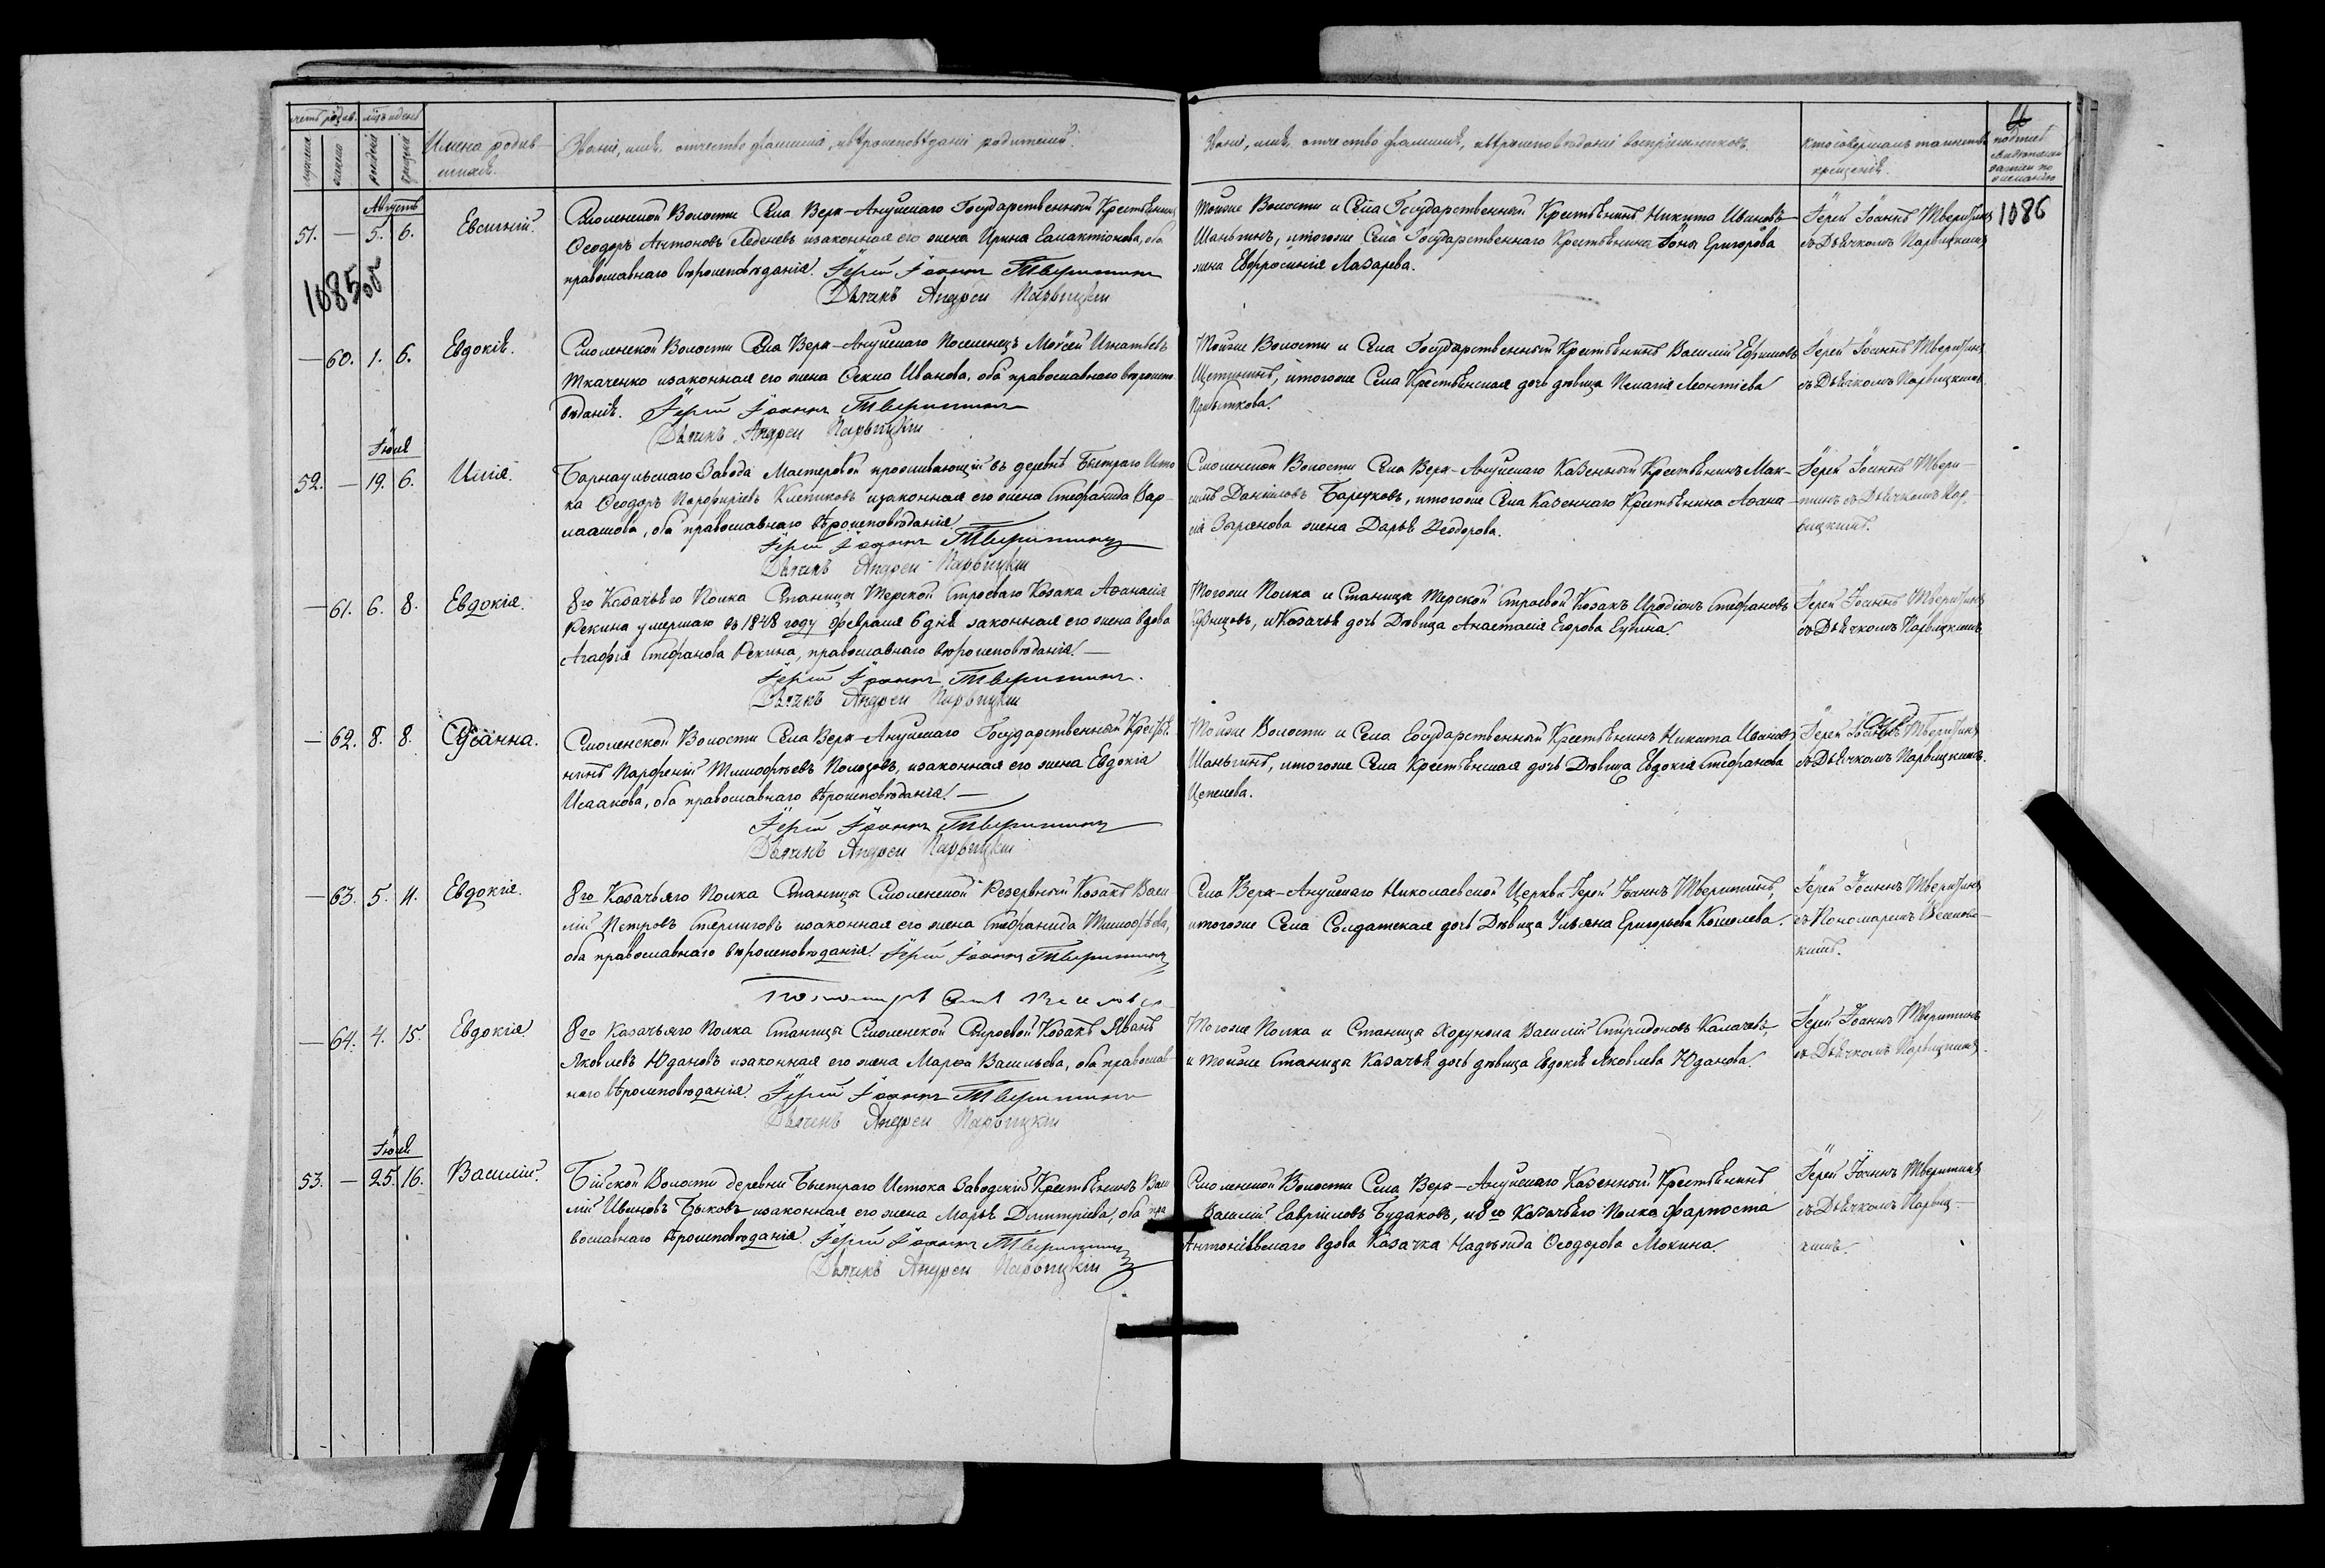 счетъ родив. мѣс. и день
Имена родив-
шихся.
Званіе, имя, отчество фамилія, и вѣроисповѣданіе родителей.
Званіе, имя, отчество фамилія, и вѣроисповѣданіе воспріемниковъ.
кто совершалъ таинство
крещенія.
Августъ
51. — 5. 6. Евсигній.
Смоленской Волости Села Верх-Ануйскаго Государственный Крестьянинъ
Ѳеодоръ Антоновъ Леденевъ и законная его жена Ирина Галактіонова, оба
православнаго вѣроисповѣданія. Іерей Іоаннъ Тверитинъ
Дьячекъ Андрей Парвицкій
Тойже Волости и Села Государственный Крестьянинъ Никита Ивановъ
Шаньгинъ, итогоже Села Государственнаго Крестьянина Іоны Григорьева
жена Евфросинія Лазарева.
Іерей Іоаннъ Тверитинъ
съ Дьячкомъ Парвицкимъ
1086
1085об
— 60. 1. 6. Евдокія.
Смоленской Волости Села Верх-Ануйскаго Поселенецъ Моѵсей Игнатьевъ
Ткаченко и законная его жена Ѳекла Иванова, оба православнаго вѣроиспо
вѣданія. Іерей Іоаннъ Тверитинъ
Дьячекъ Андрей Парвицкій
Тойже Волости и Села Государственный Крестьянинъ Василій Ефимовъ
Щетининъ, итогоже Села Крестьянская дочь дѣвица Пелагія Леонтіева
Прибыткова.
Іерей Іоаннъ Тверитинъ
съ Дьячкомъ Парвицкимъ.
Іюля
52. — 19. 6. Илія.
Барнаульскаго Завода Мастеровой проживающій въ деревнѣ Быстраго Исто
ка Ѳеодоръ Парфиріевъ Клепиковъ и законная его жена Стефанида Вар-
лаамова, оба православнаго вѣроисповѣданія
Іерей Іоаннъ Тверитинъ
Дьячекъ Андрей Парвицкій
Смоленской Волости Села Верх-Ануйскаго Казенный Крестьянинъ Мак-
симъ Даниловъ Барсуковъ, итогоже Села Казеннаго Крестьянина Аѳана-
сія Зырянова жена Дарья Ѳеодорова.
Іерей Іоаннъ Твери-
тинъ съ Дьячкомъ Пар-
вицкимъ.
— 61. 6. 8. Евдокія.
8го Казачьяго Полка Станицы Терской Строеваго Козака Аѳанасія
Рекина умершаго въ 1848 году февраля 6 дня законная его жена вдова
Агафія Стефанова Рекина, православнаго вѣроисповѣданія. —
Іерей Іоаннъ Тверитинъ.
Дьячекъ Андрей Парвицкій
Тогоже Полка и Станицы Терской Строевой Козакъ Иродіонъ Стефановъ
Кузнецовъ, и Казачья дочь Дѣвица Анастасія Егорова Ехина.
Іерей Іоаннъ Тверитинъ
съ Дьячкомъ Парвицкимъ
— 62. 8. 8. Сусанна.
Смоленской Волости Села Верх-Ануйскаго Государственный Крестья
нинъ Парфеній Тимофѣевъ Полозовъ, и законная его жена Евдокія
Исаакова, оба православнаго вѣроисповѣданія. —
Іерей Іоаннъ Тверитинъ
Дьячекъ Андрей Парвицкій
Тойже Волости и Села Государственный Крестьянинъ Никита Ивановъ
Шаньгинъ, итогоже Села Крестьянская дочь Дѣвица Евдокія Стефанова
Цепелева.
Іерей Іоаннъ Тверитинъ
съ Дьячкомъ Парвицкимъ.
— 63. 5. 11. Евдокія.
8го Казачьяго Полка Станицы Смоленской Резервный Козакъ Васи
лій Петровъ Стерлиговъ и законная его жена Стефанида Тимофѣева,
оба православнаго вѣроисповѣданія. Іерей Іоаннъ Тверитинъ
Села Верх-Ануйскаго Николаевской Церкви Іерей Іоаннъ Тверитинъ,
итогоже Села Солдатская дочь Дѣвица Ульяна Григорьева Кошелева.
Іерей Іоаннъ Тверитинъ
съ Пономаремъ Веселовс-
кимъ.
— 64. 4. 15. Евдокія
8го Казачьяго Полка Станицы Смоленской Строевой Козакъ Иванъ
Яковлевъ Юдановъ и законная его жена Марѳа Васильева, оба православ
наго вѣроисповѣданія. Іерей Іоаннъ Тверитинъ
Дьячекъ Андрей Парвицкій
Тогоже Полка и Станицы Хорунжій Василій Спиридоновъ Калачевъ,
и тойже Станицы Казачья дочь дѣвица Евдокія Яковлева Юданова.
Іерей Іоаннъ Тверитинъ
съ Дьячкомъ Парвицкимъ.
Іюля
53. — 25. 16. Василій.
Бійской Волости деревни Быстраго Истока Заводскій Крестьянинъ Васи
лій Ивановъ Быковъ и законная его жена Марья Димитріева, оба пра
вославнаго вѣроисповѣданія. Іерей Іоаннъ Тверитинъ
Дьячекъ Андрей Парвицкій
Смоленской Волости Села Верх-Ануйскаго Казенный Крестьянинъ
Василій Гавриловъ Будаковъ, и 8го Казачьяго Полка форпоста
Антоніевскаго вдова Казачка Надежда Ѳеодорова Мокина.
Іерей Іоаннъ Тверитинъ
съ Дьячкомъ Парвиц-
кимъ.